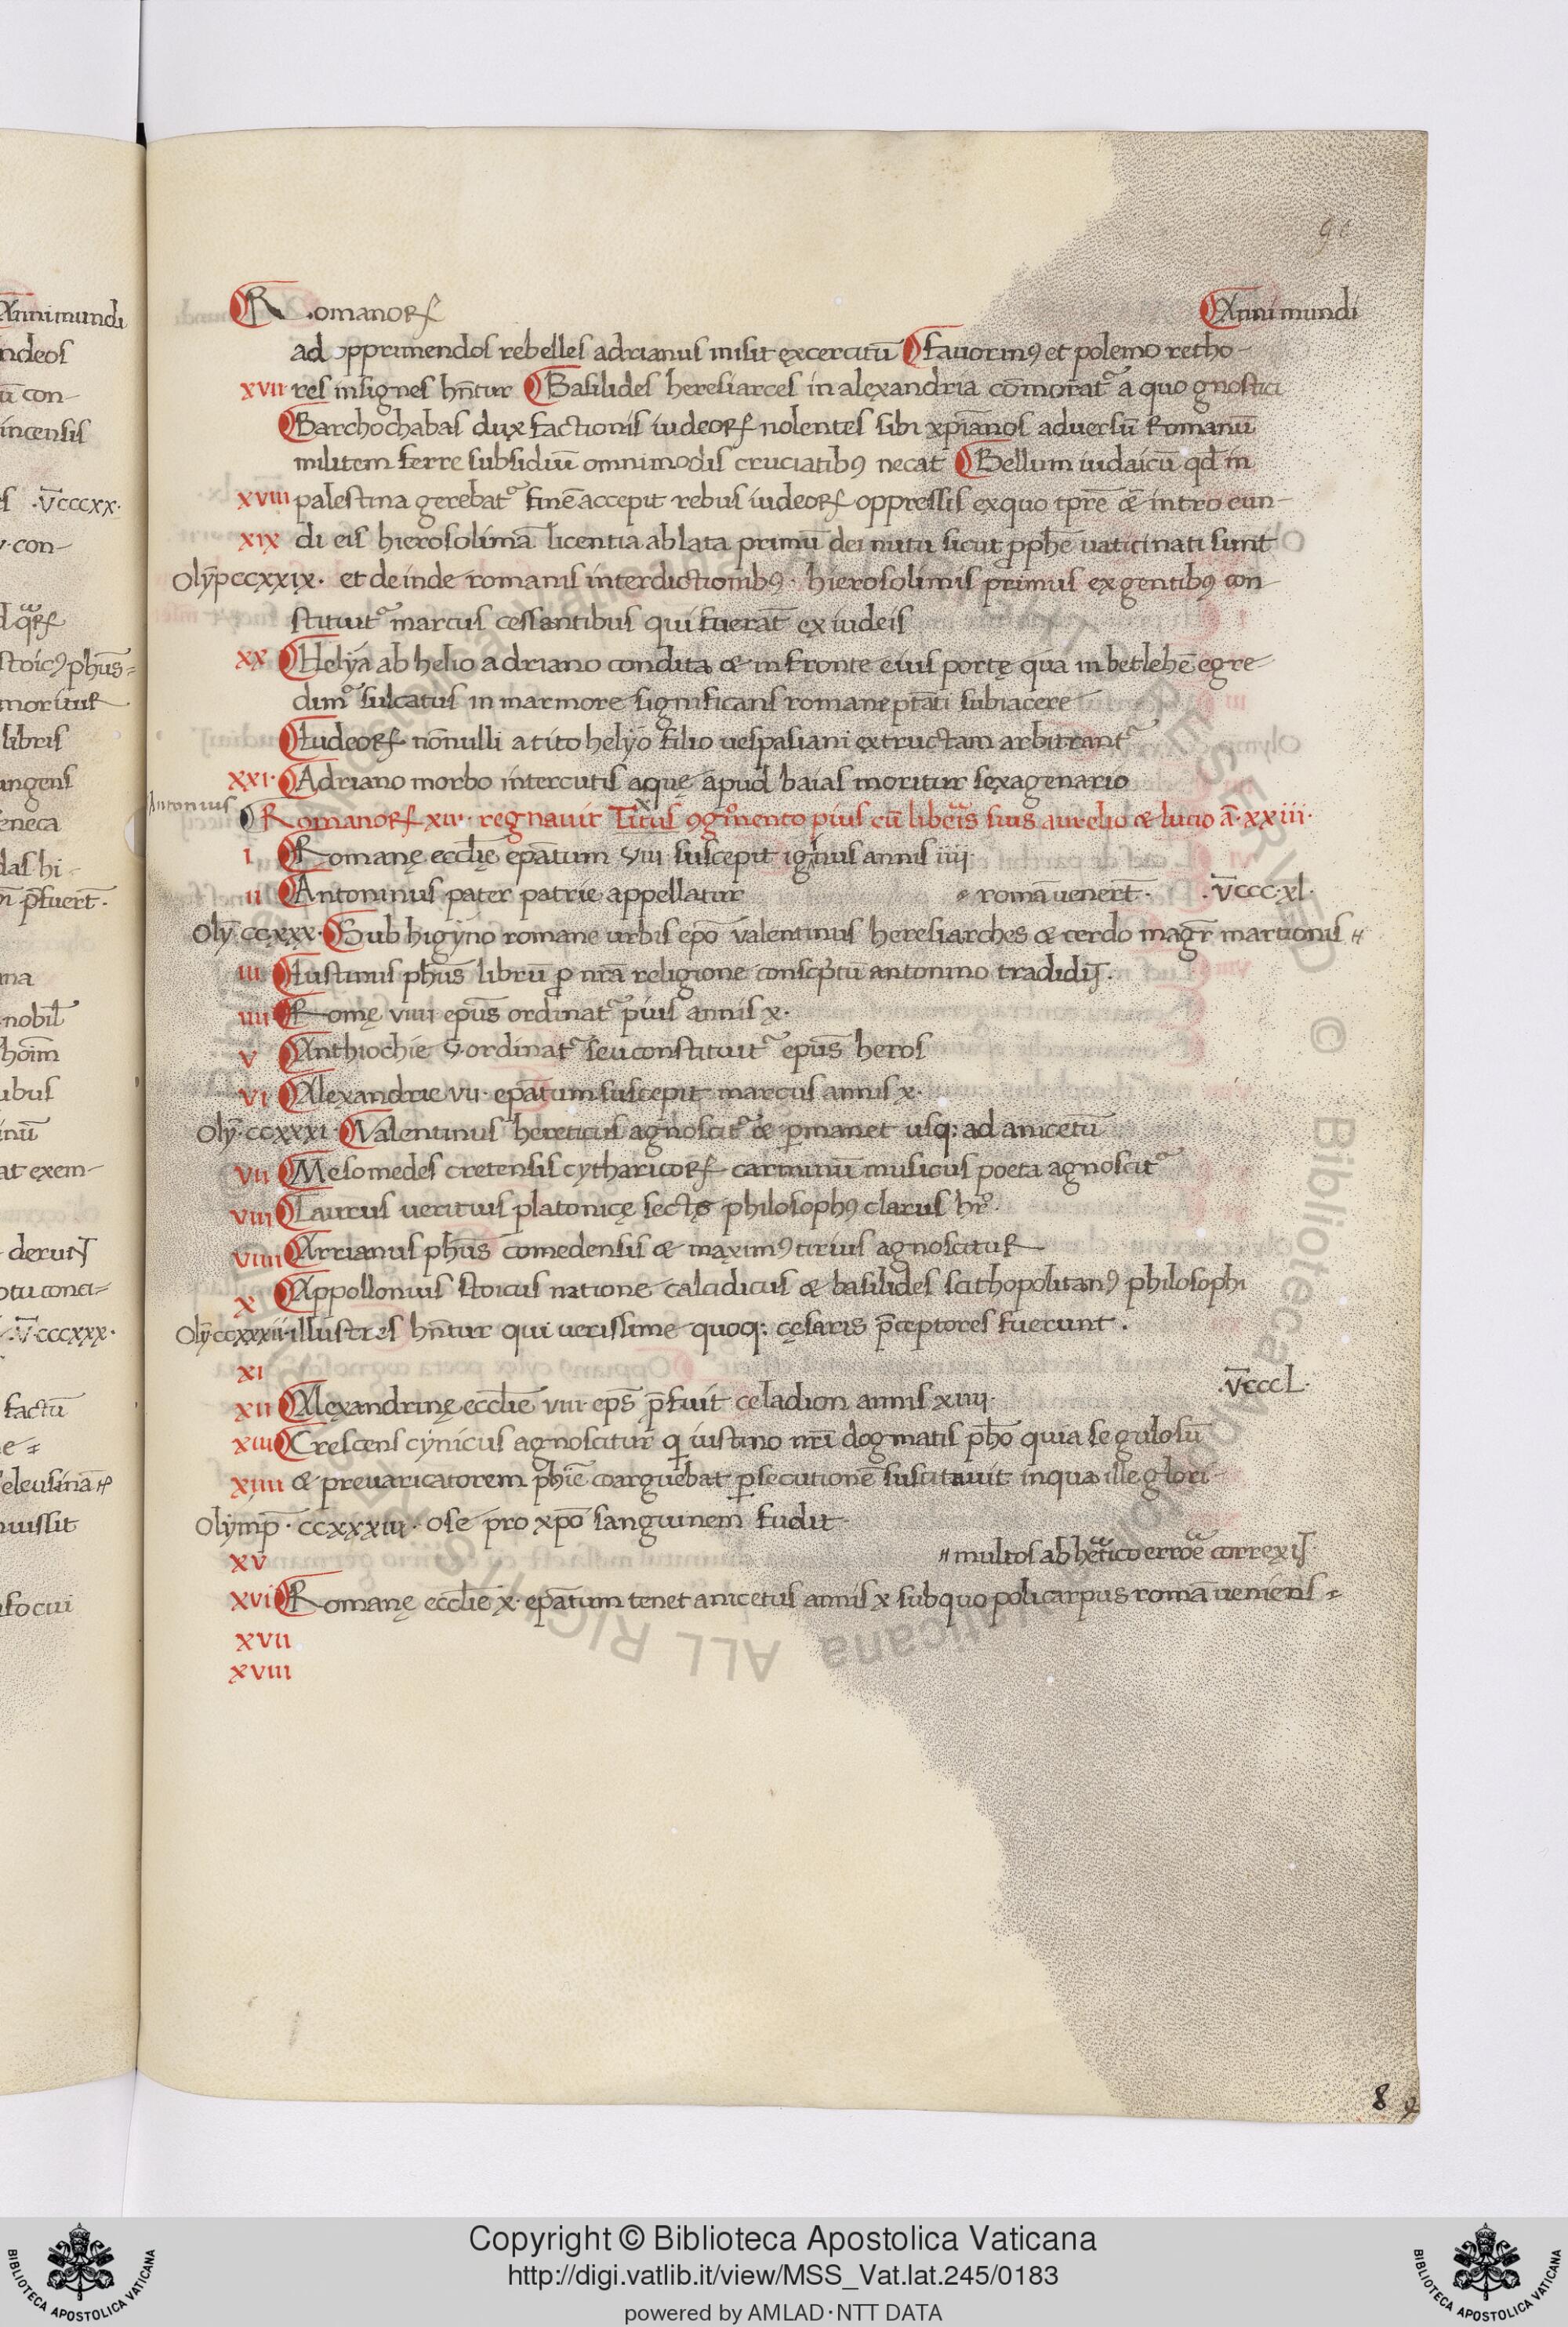 Romanoꝝ Anni mundi
ad opprimendos rebelles adrianus misit ęxcercitū Fauorinꝰ et polemo retho-
XVII res insignes hn̄tur Basilides heresiarces in alęxandria cōmorat᷒ a quo gnostici
Barchochabas dux factionis iudeoꝝ nolentes sibi xp̄ianos aduersū Romanū
militem ferre subsidiū omnimodis cruciatibꝰ necat Bellum iudaicū qd̄ in
XVIII palestina gerebat᷒ finē accepit rebus iudeoꝝ oppressis exquo tp̄re & intro eun-
XIX di eis hierosolimā licentia ablata primū dei nutu sicut ꝓphē uaticinati sunt
Olȳp ccxxix. et deinde romanis interdictionibꝰ. hierosolimis primus ex gentibꝰ con-
stituit᷒ marcus cessantibus qui fuerāt ex iudeis
XX Helya ab helio adriano condita & in fronte eius portę qua in betlehē egre-
dim᷒ sulcatus in marmore significans romane ptāti subiacere
Iudeoꝝ nōnulli a tito helyo filio uespasiani extructam arbitrant᷒
XXI. Adriano morbo intercutis aquę apud baias moritur sexagenario
Antonius
Romanoꝝ xiv. regnauit Titus ꝯgnͦmento pius cū libeis suis aurelio & lucio ā. xxiii.
I Romanę eccłie epātum viii suscepit ignus annis iiii.
II Antoninus pater patrie appellatur romā uenert̄. .v̄ccc.xl.
Olȳ. ccxxx. Sub higyno romane urbis epō valentinus heresiarches & cerdo magr̄ martionis
III Iustinus ph̄us librū ꝓ nrā religione conscptū antonino tradidit.
IIII Romę viiii epūs ordinat᷒ pius annis x.
V Anthiochie v ordinat᷒ seu constituit᷒ epūs heros
VI Alexandrie vii. epātum suscepit marcus annis x.
Olȳ. ccxxxi. Valentinus hereticus agnoscit᷒ & ꝑmanet usq: ad anicetū
VII Mesomedes cretensis cytharicoꝝ carminū musicus poeta agnoscit᷒
VIII Taurus veritius platonicę sectę philosophꝰ clarus hr᷒.
VIIII Arrianus ph̄us comedensis & maximꝰ tirius agnoscitur
X Appollonius stoicus natione calcidicus & basilides scithopolitanꝰ philosophi
Olȳ. ccxxxii. illustres hn̄tur qui uerissime quoq: cęsaris p̄ceptores fuerunt.
XI .v̄cccL.
XII Alęxandrinę eccłie viii. eps̄ p̄fuit celadion annis xiiii.
XIII Crescens cynicus agnoscitur q iustino nr̄i dogmatis ph̄o quia se gulosū
XIIII & preuaricatorem ph̄ie coarguebat ꝑsecutionē suscitauit inqua ille glori-
Olymp̄. ccxxxiii. ose pro xp̄o sanguinem fudit
XV multos ab hetico erroe correxit
XVI Romanę eccłie x. epātum tenet anicetus annis x sub quo policarpus romā ueniens
XVII
XVIII
8
Copyright © Biblioteca Apostolica Vaticana
http://digi.vatlib.it/view/MSS_Vat.lat.245/0183
powered by AMLAD·NTT DATA
BIBLIOTECA APOSTOLICA VATICANA
BIBLIOTECA APOSTOLICA VATICANA